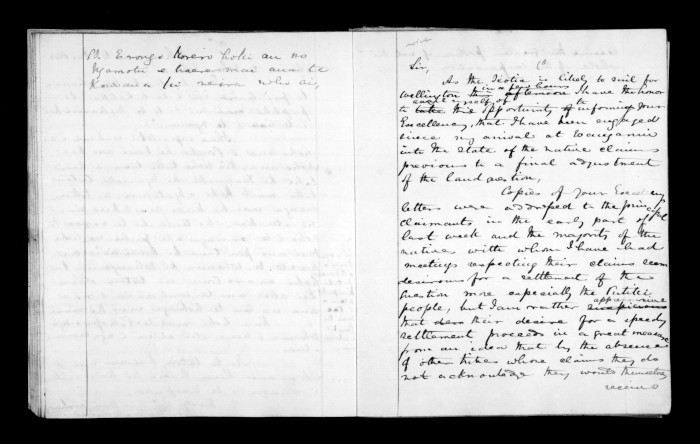 E hoa
Korero hoki au no
Ngamotu e haere mai ana te
Kawana
Sir,
As the Scotia is likely to sail for
Wellington in a few hours this afternoon I have the honor
avail myself of
to take this opportunity of to informing Your
Excellency, that I have been engaged
since my arrival at Wanganui
into the state of the native claims
previous to a final adjustment
of the land question,
Copies of Your Excellency
letters were addressed to the principal
claimants in the early part of
last week and the majority of the
natives with whom I have had
meetings respecting their claims seem
desirous for a settlement of the
question more especially the Putiki
people, but I am rather apprehensive suspicious
that their desire for a speedy
settlement proceeds in a great measure
from an idea that by the absence
of other tribes whose claims they do
not acknowledge they would themselves
receive